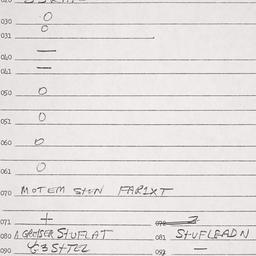 030 O
O
031
040 —
041 —
050 O
051 O
060 O
061 O
070 MOTEM STON FARIXT
071 + 072 7
080 A GROSER STUFLAT 081 STUFLEADN
090 ¢3 STTEZ 091 —